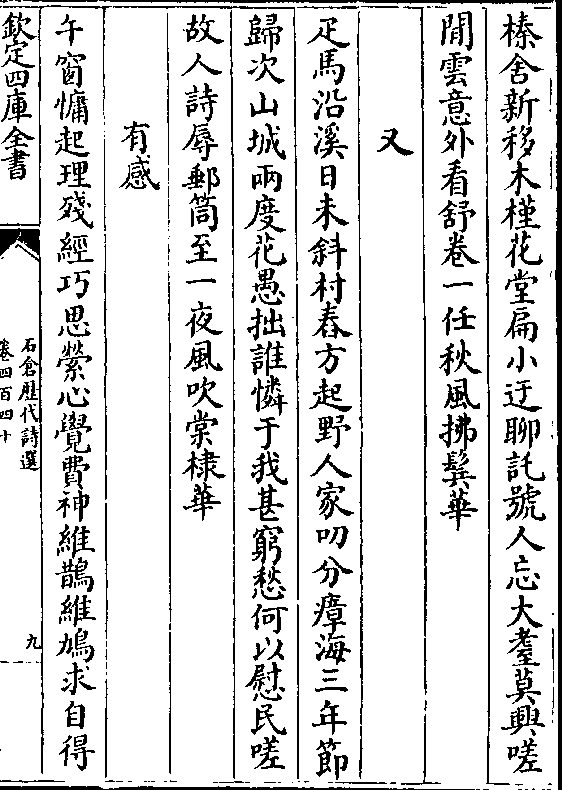 榛舍新移木槿花堂扁小迂聊託號人忘大耋莫興嗟
閒雲意外看舒卷一任秋風拂鬂華
又
疋馬沿溪日未斜村舂方起野人家叨分瘴海三年節
歸次山城兩度花愚拙誰憐于我甚窮愁何以慰民嗟
故人詩辱郵筒至一夜風吹棠棣華
有感
午窗慵起理殘經巧思縈心覺費神維鵲維鳩求自得
欽定四庫全書
石倉歴代詩選
卷四百四十
九